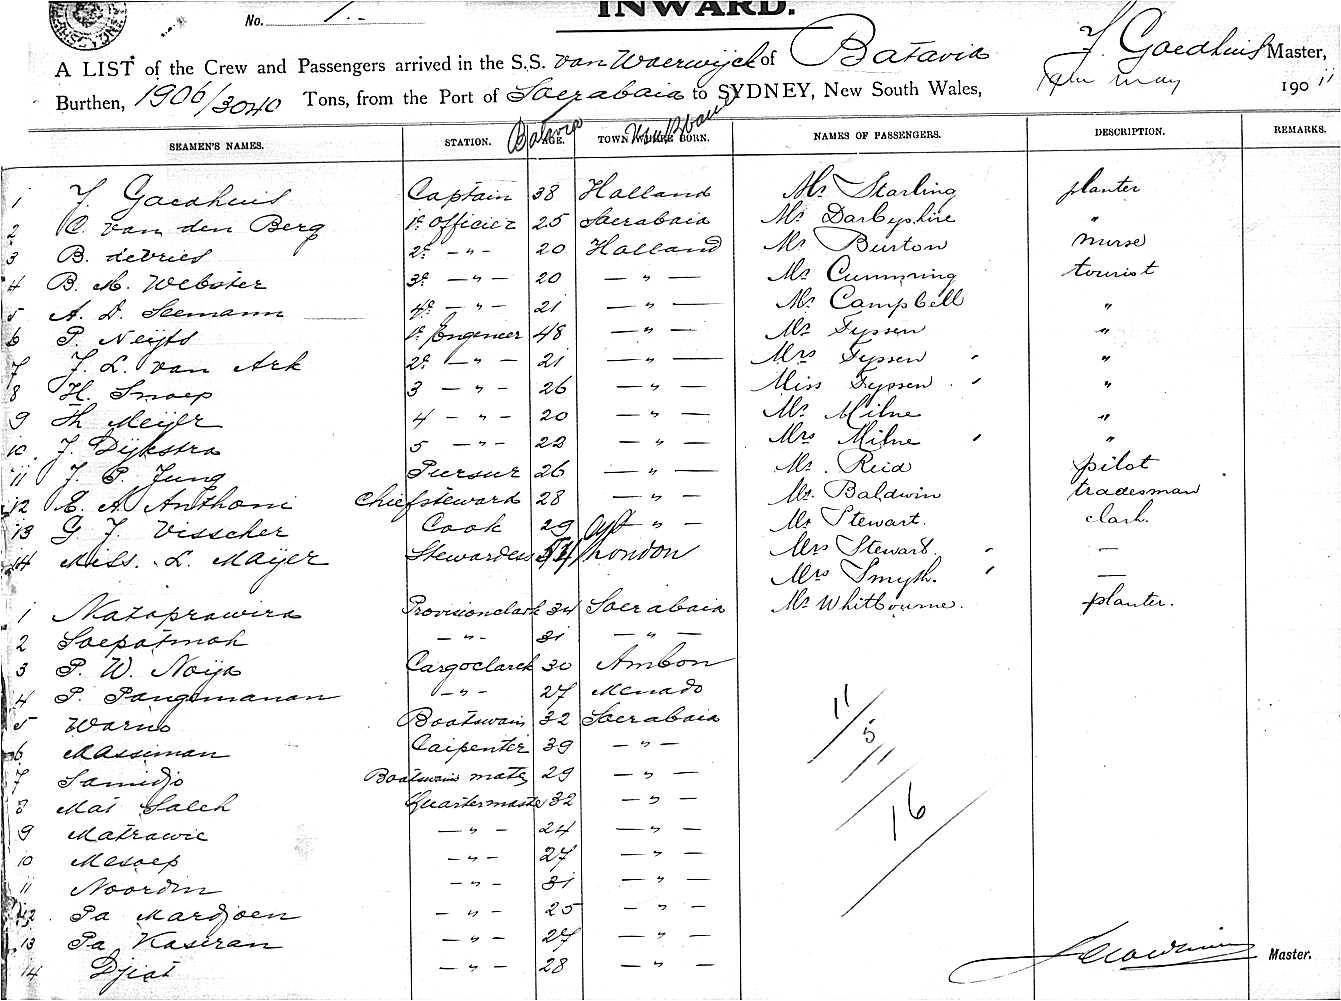 INWARD.
No. 1.
A LIST of the Crew and Passengers arrived in the S.S. van Waerwijck of Batavia J. Goedhuis Master,
Burthen, 1906/3040 Tons, from the Port of Soerabaia to SYDNEY, New South Wales, May 190 11
Batavia
SEAMEN'S NAMES. STATION. AGE. TOWN WHERE BORN. NAMES OF PASSENGERS. DESCRIPTION. REMARKS.
1 J. Goedhuis Captain 38 Holland Mr Starling planter
2 C. van den Berg 1e officier 25 Soerabaia Mr Darbyshire "
3 B. deVries 2e — " — 20 Holland Mr Burton nurse
4 B. M. Webster 3e — " — 20 — " — Mr Cumming tourist
5 A. D. Seemann 4e — " — 21 — " — Mr Campbell "
6 P. Neijts 1e Engeneer 48 — " — Mr Fyssen "
7 J. L. van Ark 2e — " — 21 — " — Mrs Fyssen "
8 H. Snoep 3 — " — 26 — " — Miss Fyssen "
9 Th Meijer 4 — " — 20 — " — Mr Milne "
10 J. Dijkstra 5 — " — 22 — " — Mrs Milne "
11 J. P. Jung Pursur 26 — " — Mr. Reid pilot
12 E. A. Anthoni Chiefsteward 28 — " — Mr. Baldwin tradesman
13 G. J. Visscher Cook 29 — " — Mr Stewart. clark.
14 Miss. L. Mayer Stewardess 54 London Mrs Stewart. —
Mrs Smyth. —
1 Nataprawira Provisionclark 34 Soerabaia Mr Whitbourne. planter.
2 Soepatmoh — " — 31 — " —
3 P. W. Noija Cargoclarck 30 Ambon
4 P. Pangemanan — " — 27 Menado
5 Warno Boatswain 32 Soerabaia 11
6 Massiman Caipenter 39 — " — 5
7 Samidjo Boatswain mate 29 — " —
8 Mat Saleh Quartermaster 32 — " — 16
9 Matrawie — " — 24 — " —
10 Mesoep — " — 27 — " —
11 Noordin — " — 31 — " —
12 Pa Mardjoen — " — 25 — " —
13 Pa Kaseran — " — 27 — " —
14 Djiat — " — 28 — " —
Master.